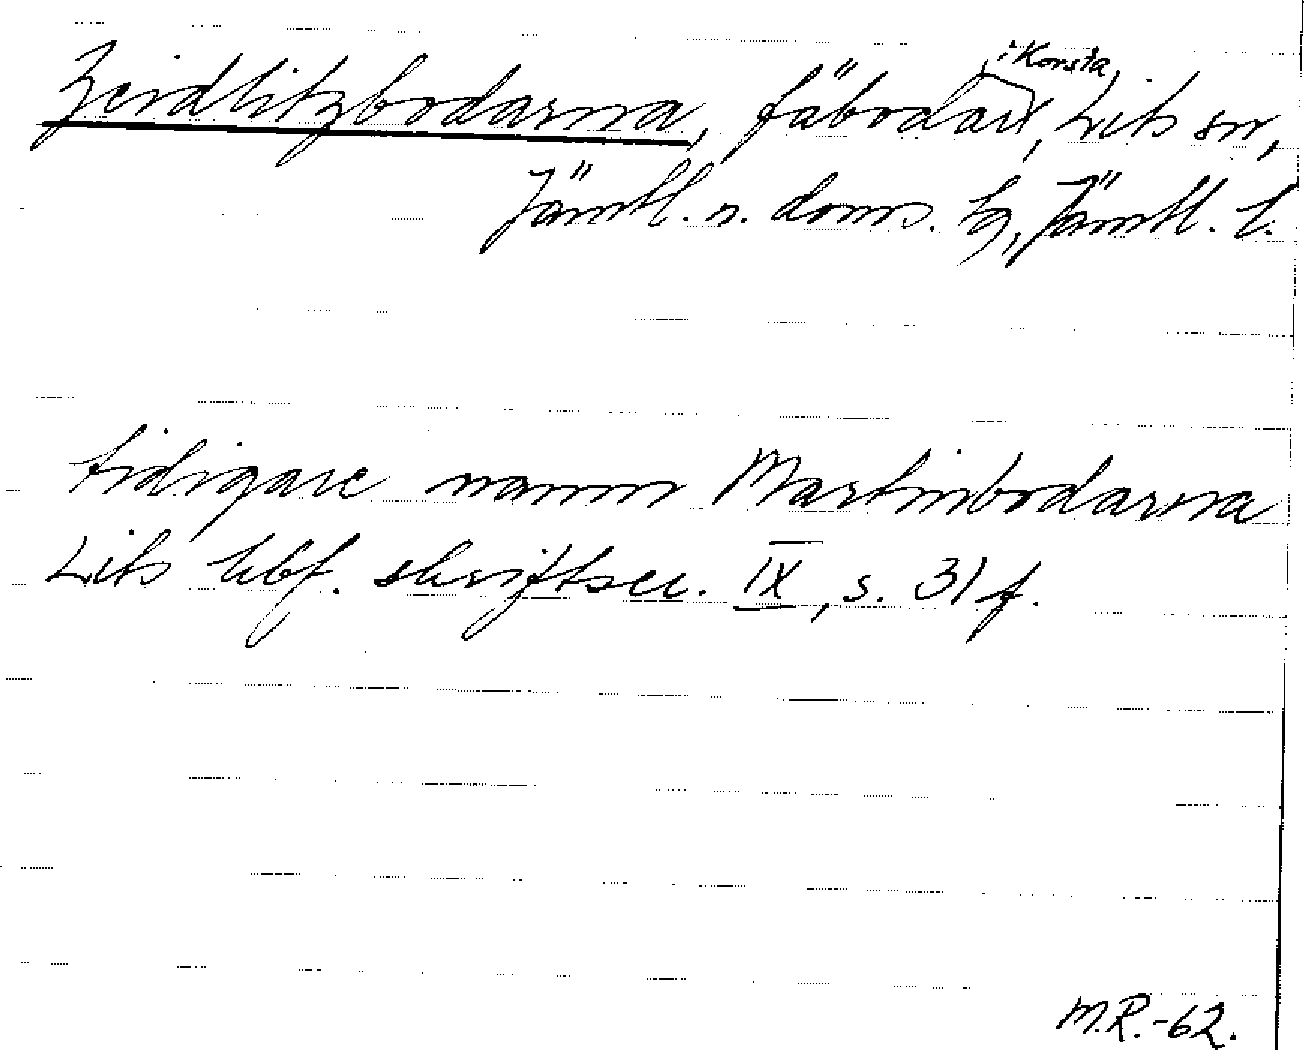 Zeidlitzbodarna, fäbodar i Korsta, Lits sn,
Jämtl. n. doms. tg, Jämtl. l.
tidigare namn Martinbodarna
Lits hbf. skriftser. IX, s. 31 f.
M.R.-62.